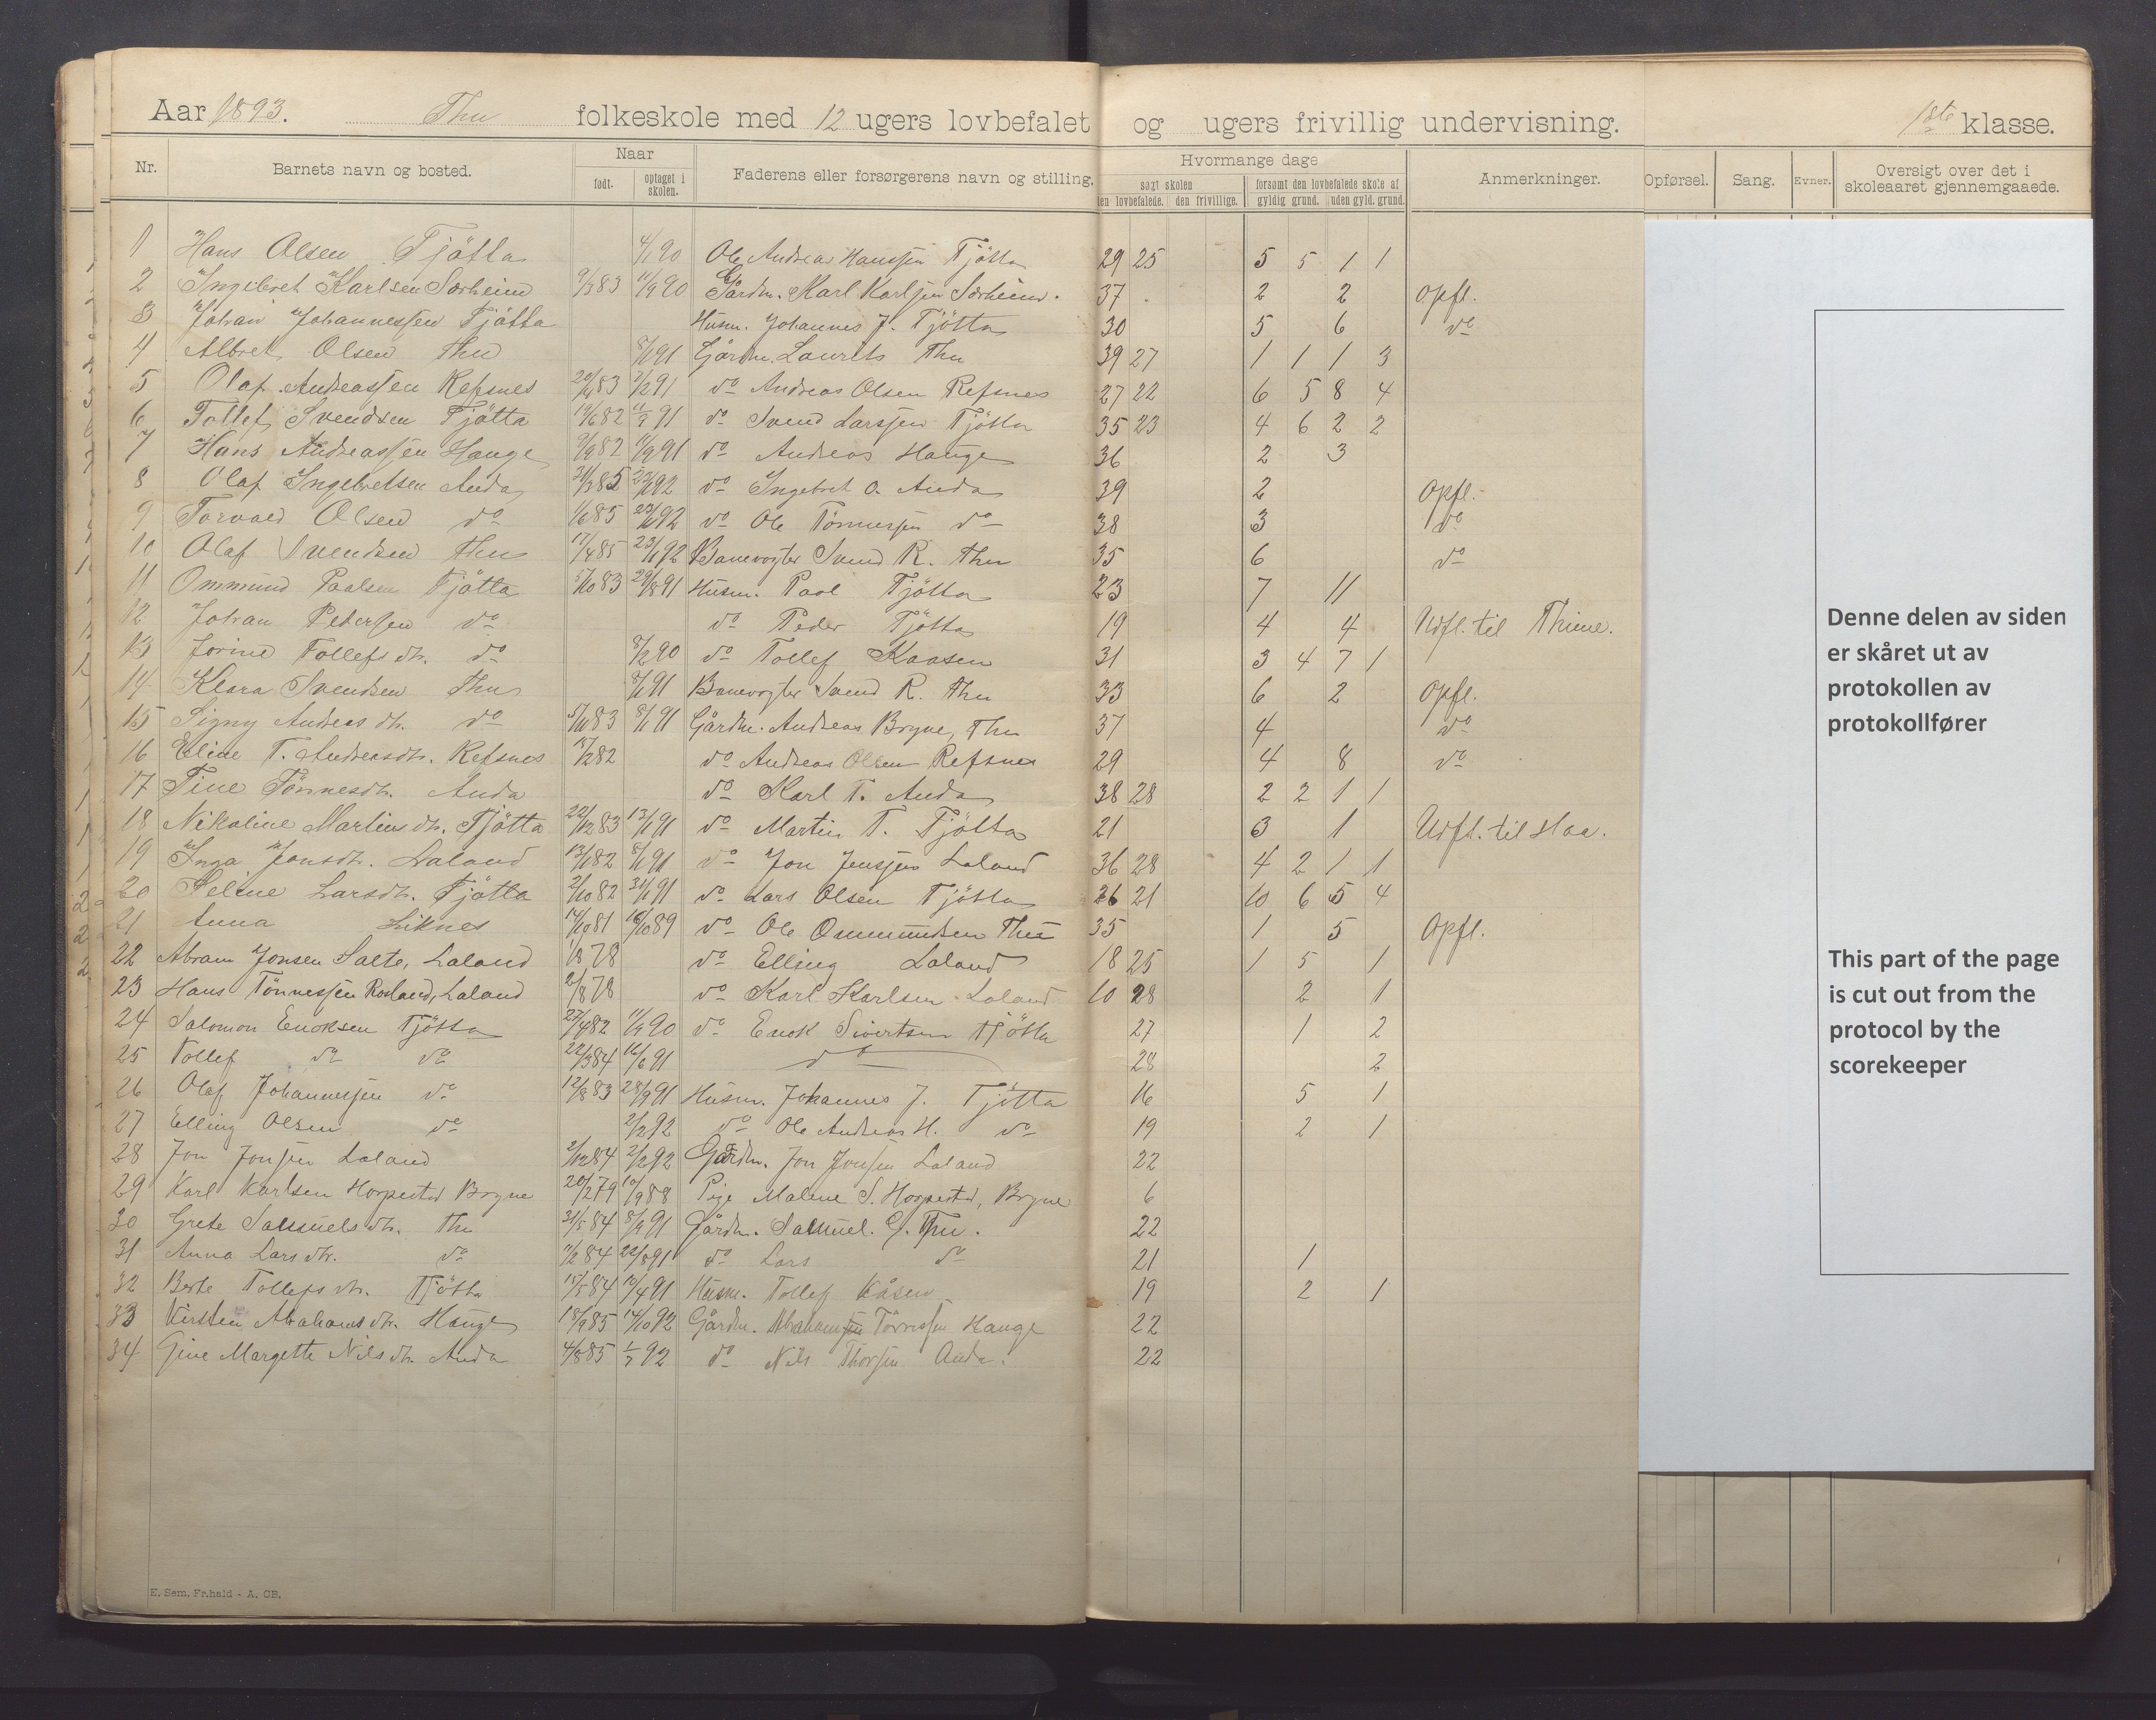 Aar 1893. Thu folkeskole med 12 ugers lovbefalet og ugers frivillig undervisning. 1ste klasse.
Nr. Barnets navn og bosted. Naar født. optaget i skolen. Faderens eller forsørgerens navn og stilling. Hvormange dage søgt skolen den lovbefalede. den frivillige. forsømt den lovbefalede skole af gyldig grund. uden gyld. grund. Anmerkninger. Opførsel. Sang. Evner. Oversigt over det i skoleaaret gjennemgaaede.
1 Hans Olsen Tjøtta 4/1 90 Ole Andreas Hanssen Tjøtta 29 25 5 5 1 1
2 Ingebret Karlsen Særheim 9/3 83 11/9 90 Gårdm. Karl Karlsen Særheim. 37 2 2 Opfl.
3 Johan Johannessen Tjøtta Husm. Johannes J. Tjøtta 30 5 6 do
4 Albret Olsen Thu 8/1 91 Gårdm. Laurits Thu 39 27 1 1 1 3
5 Olaf Andreassen Refsnes 20/4 83 2/2 91 do Andreas Olsen Refsnes 27 22 6 5 8 4
6 Tollef Svendsen Tjøtta 19/6 82 11/9 91 do Svend Larssen Tjøtta 35 23 4 6 2 2
7 Hans Andreassen Hauge 9/9 82 11/9 91 do Andreas Hauge 36 2 3
8 Olaf Ingebretsen Anda 31/3 85 23/1 92 do Ingebret O. Anda 39 2 Opfl.
9 Torvald Olsen do 1/6 85 23/1 92 do Ole Tønnessen do 38 3 do
10 Olaf Svendsen Thu 17/4 85 23/1 92 Banevogter Svend R. Thu 35 6 do
11 Ommund Paalsen Tjøtta 5/10 83 29/8 91 Husm. Paal Tjøtta 23 7 11
12 Johan Petersen do do Peder Tjøtta 19 4 4 Udfl. til Thime.
13 Jorine Tollefsdtr. do 8/2 90 do Tollef Kaasen 31 3 4 7 1
14 Klara Svendsen Thu 8/1 91 Banevogter Svend R. Thu 33 6 2 Opfl.
15 Signy Andreasdtr. do 5/10 83 8/1 91 Gårdm. Andreas Bryne, Thu 37 4 do
16 Eline T. Andreasdtr. Refsnes 18/12 82 do Andreas Olsen Refsnes 29 4 8 do
17 Tine Tønnesdtr. Anda do Karl T. Anda 38 28 2 2 1 1
18 Nikoline Martinsdtr. Tjøtta 22/12 83 13/1 91 do Martin T. Tjøtta 21 3 1 Udfl. til Haa.
19 Inga Jonsdtr. Laland 13/1 82 8/1 91 do Jon Jenssen Laland 36 28 4 2 1 1
20 Seline Larsdtr. Tjøtta 2/10 82 31/1 91 do Lars Olsen Tjøtta 26 21 10 6 5 4
21 Anna Liknes 14/10 81 16/10 89 do Ole Ommundsen Thu 35 1 5 Opfl.
22 Abram Jonsen Salte, Laland 1/8 78 do Elling Laland 18 25 1 5 1
23 Hans Tønnessen Rosland, Laland 2/8 78 do Karl Karlsen Laland 10 28 2 1
24 Salomon Enoksen Tjøtta 27/4 82 11/9 90 do Enok Sivertsen Tjøtta 27 1 2
25 Tollef do do 22/3 84 16/6 91 do 28 2
26 Olaf Johannessen do 12/8 83 28/9 91 Husm. Johannes J. Tjøtta 16 5 1
27 Elling Olsen do 2/2 92 do Ole Andreas H. do 19 2 1
28 Jon Jonsen Laland 2/12 84 2/2 92 Gårdm. Jon Jonsen Laland 22
29 Karl Karlsen Horpestad Bryne 20/2 79 10/9 88 Pige Malene S. Horpestad, Bryne 6
30 Grete Samuelsdtr. Thu 31/5 84 8/9 91 Gårdm. Samuel G. Thu. 22
31 Anna Larsdtr. do 11/2 84 22/8 91 do Lars do 21 1
32 Berte Tollefsdtr. Tjøtta 15/5 84 10/4 91 Husm. Tollef Kåsen 19 2 1
33 Kirsten Abrahamsdtr. Hauge 18/9 85 14/10 92 Gårdm. Abraham Tønnessen Hauge 22
34 Gine Margette Nilsdtr. Anda 4/8 85 1/7 92 do Nils Thorsen Anda. 22
Denne delen av siden
er skåret ut av
protokollen av
protokollfører
This part of the page
is cut out from the
protocol by the
scorekeeper
E. Sem, Fr.hald - A. CB.